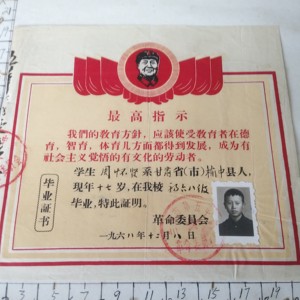 最高指示
我們的教育方針，应該使受教育者在德
育，智育，体育几方面都得到发展，成为有
社会主义觉悟的有文化的劳动者。
学生 周 贤 系甘肃省(市)榆中县人，
现年十七岁，在我校
毕业，特此証明。
毕业証书
革命委員会
一九六八年十二月八日
3 5 7 9 11 13 15 17 19